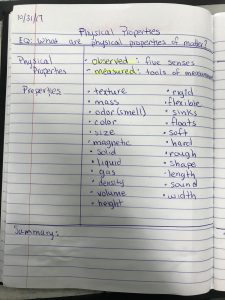 10/31/17
Physical Properties
EQ: What are physical properties of matter?
Physical Properties
• observed: five senses
• measured: tools of measurement
Properties
• texture
• mass
• odor (smell)
• color
• size
• magnetic
• solid
• liquid
• gas
• density
• volume
• height
• rigid
• flexible
• sinks
• floats
• soft
• hard
• rough
• shape
• length
• sound
• width
Summary: